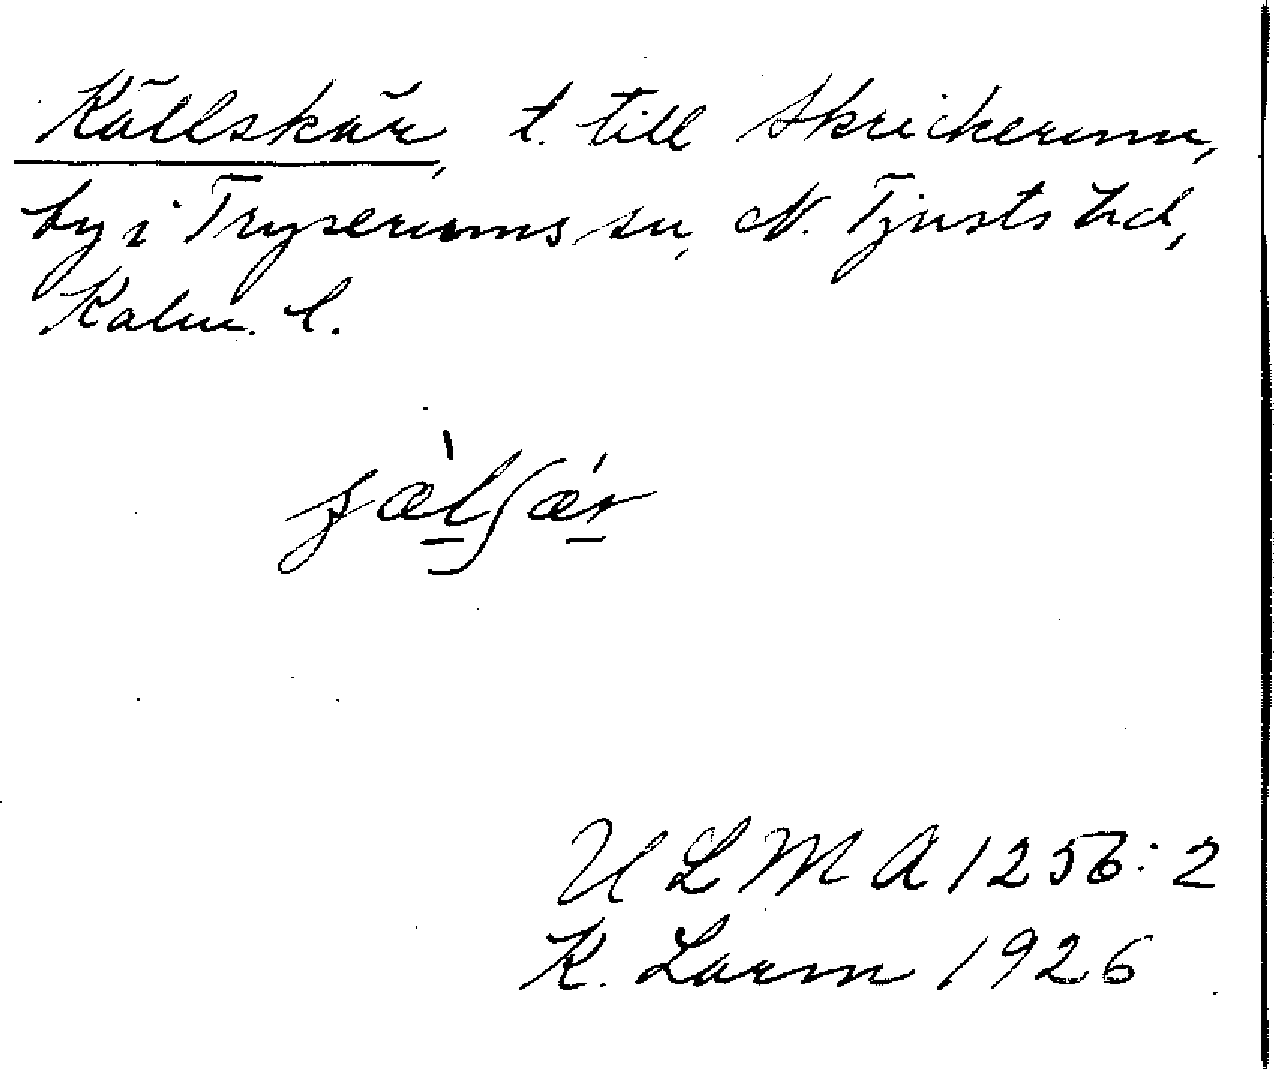 Källskär, t. till Skrickerum,
by i Tryserums sn, N. Tjusts hd,
Kalm. l.
ULMA 1256:2
K. Larm 1926